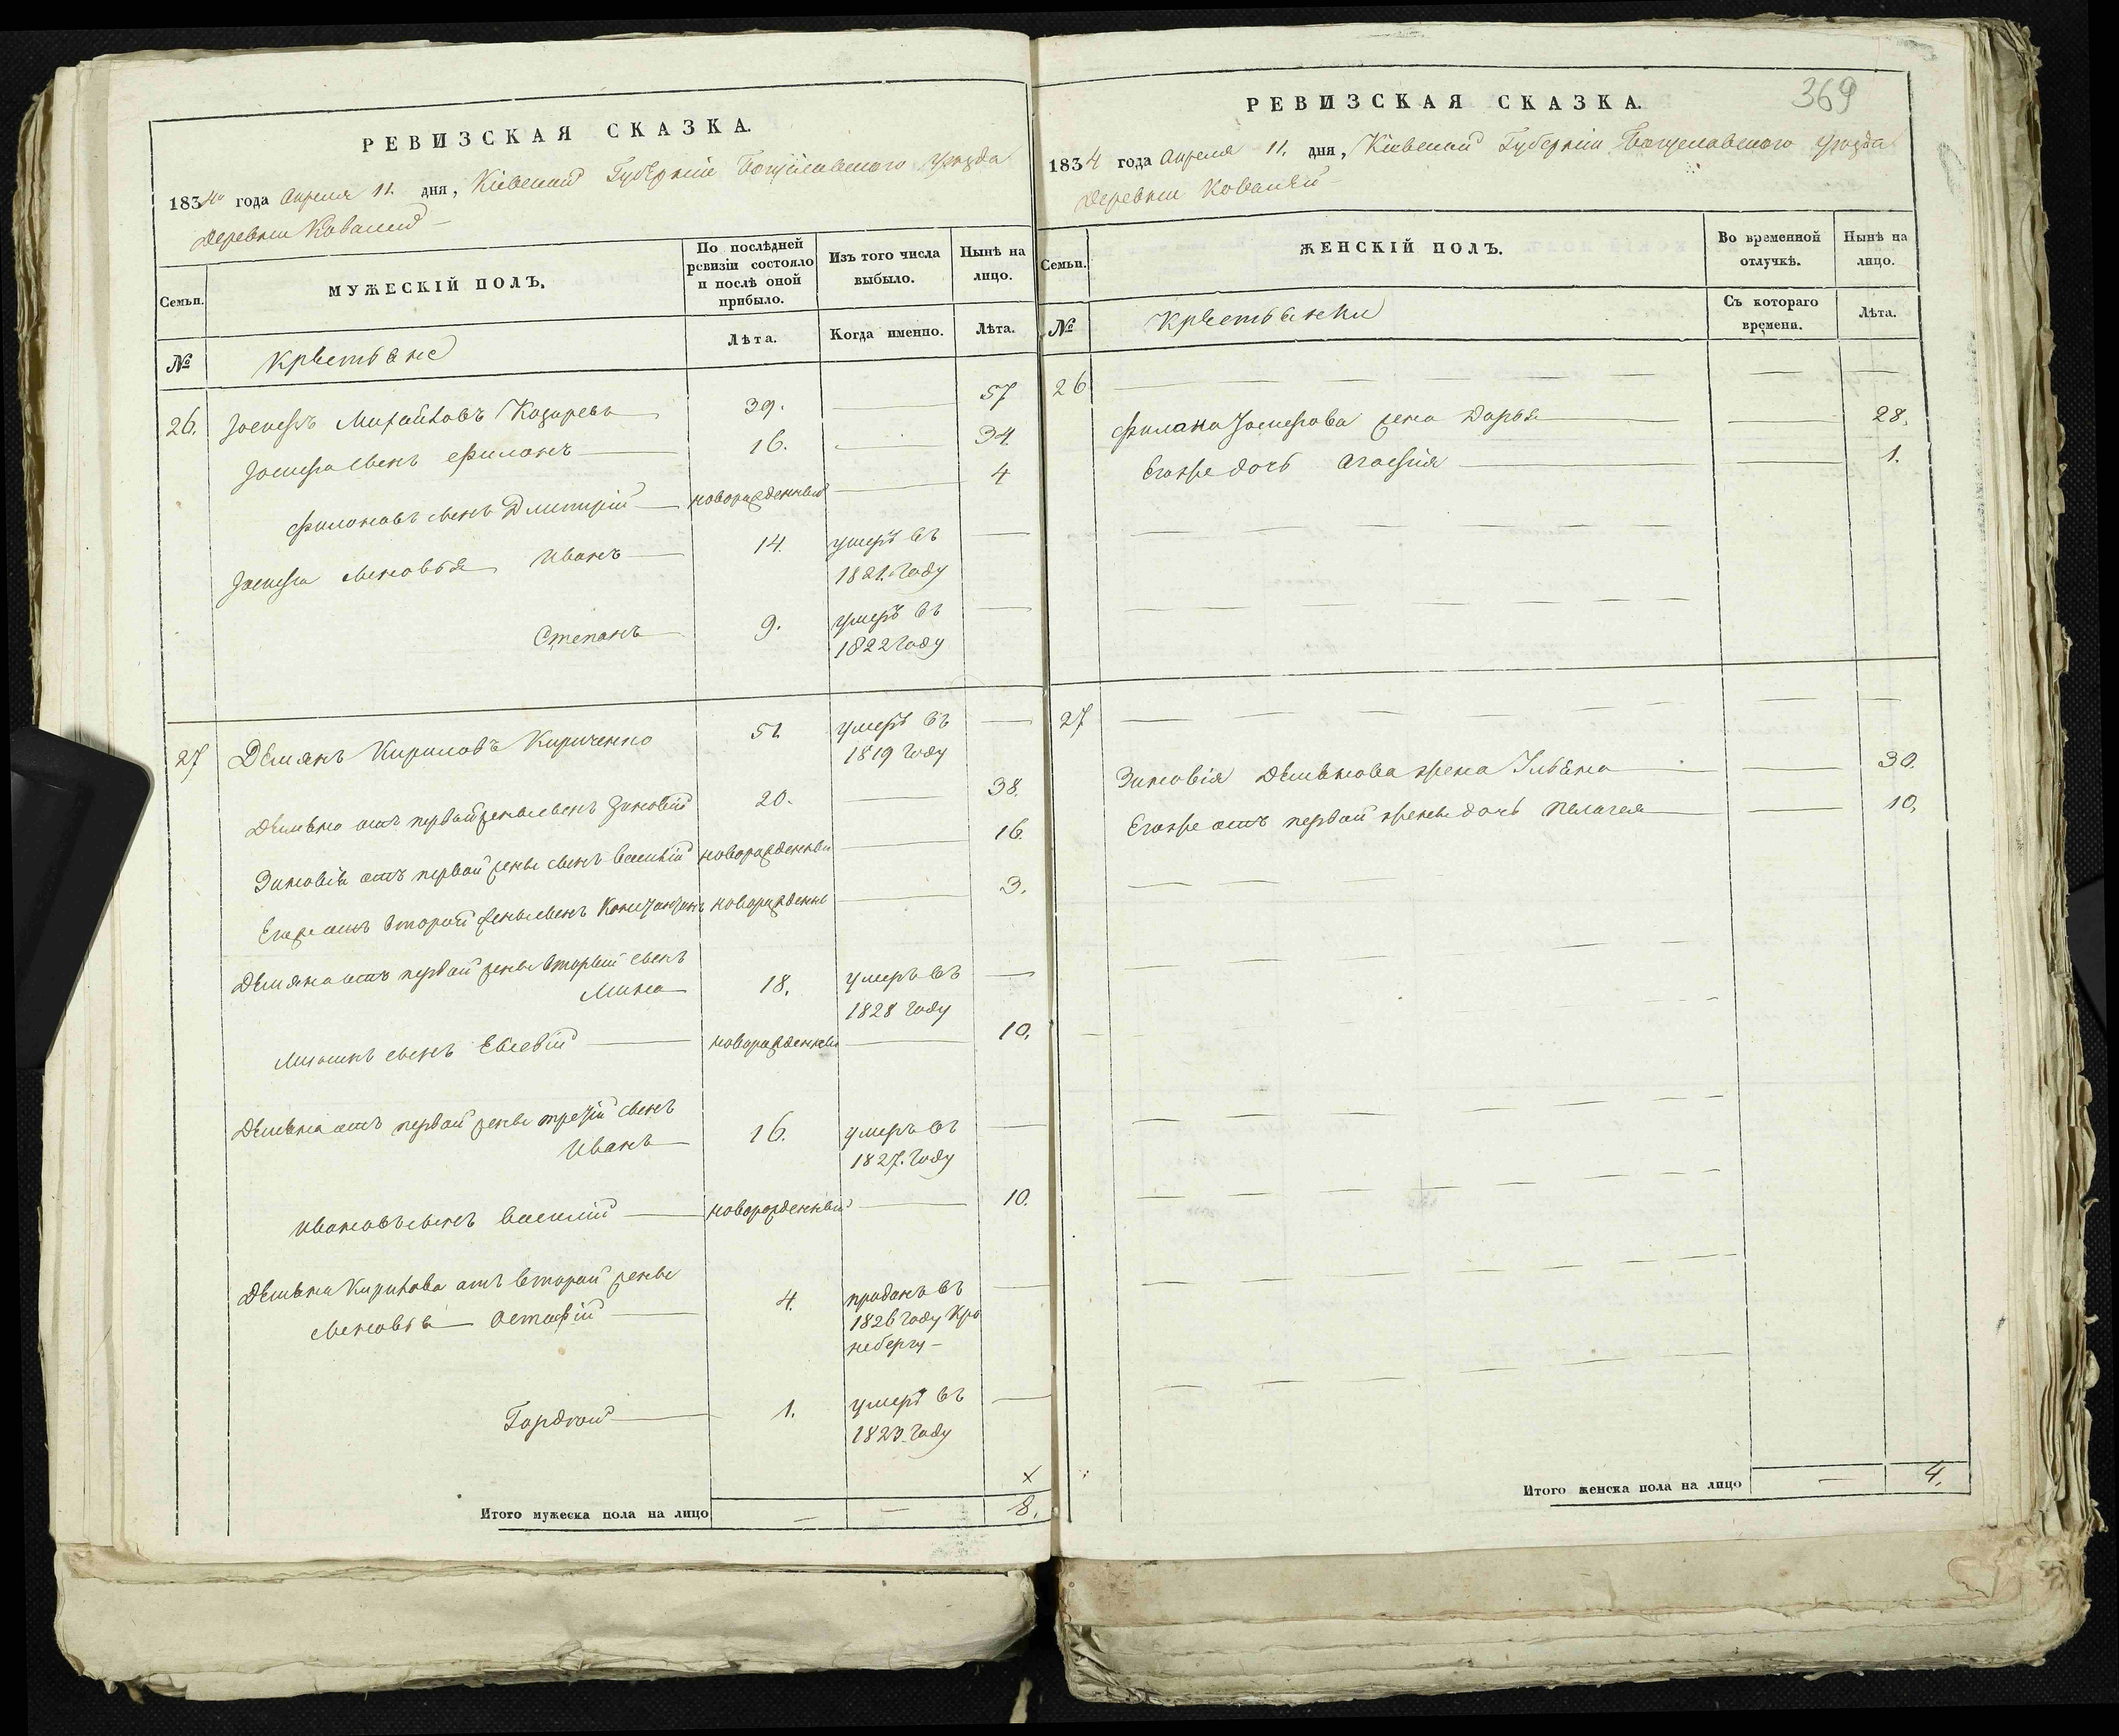 РЕВИЗСКАЯ СКАЗКА.
1834го года Апреля 11. дня, Кіевской Губерніи Богуславского уезда
Деревни Ковалий
Семьи.
МУЖЕСКІЙ ПОЛЪ.
По послѣдней ревизіи состояло и послѣ оной прибыло.
Изъ того числа выбыло.
Нынѣ на лицо.
№
Крестьяне
Лѣта.
Когда именно.
Лѣта.
26. Іосифъ Михайловъ 39. 57
Іосифа сынъ Филонъ 16. 34.
Филоновъ сынъ Дмитрій новорожденный 4
Іосифа сыновья Иванъ 14. умеръ въ
1821. году
Степанъ 9. умеръ въ
1822 году
27 Демянъ Кириловъ Кириченко 51. умеръ въ
1819 году
Демьяна отъ первой жены сынъ Зиновій 20. 38.
Зиновія отъ первой жены сынъ Василій новорожденный 16
Егоже отъ второй жены сынъ новорожденны 3.
Демяна отъ первой жены вторый сынъ
Мина 18. умеръ въ
1828 году
Мининъ сынъ Евсевій новорожденный 10.
Демьяна отъ первой жены третій сынъ
Иванъ 16. умеръ въ
1827. году
Ивановъ сынъ Василій новорожденный 10.
Демьяна Кирилова отъ второй жены
сыновья Остафій 4. проданъ въ
1826 году Кро
небергу
Гордѣй 1. умеръ въ
1823. году
Итого мужеска пола на лицо 8.
РЕВИЗСКАЯ СКАЗКА.
369
1834 года Апреля 11. дня, Кіевской Губерніи Богуславского уезда
Деревни Ковалий
Семьи.
ЖЕНСКІЙ ПОЛЪ.
Во временной отлучкѣ.
Нынѣ на лицо.
№
Крестьянки
Съ котораго времени.
Лѣта.
26
Филона Іосифова жена Дарья 28.
Егоже дочь Агафія 1.
27
Зиновія Демьянова жена Ульяна 30.
Егоже отъ первой жены дочь Пелагея 10.
Итого женска пола на лицо 4.